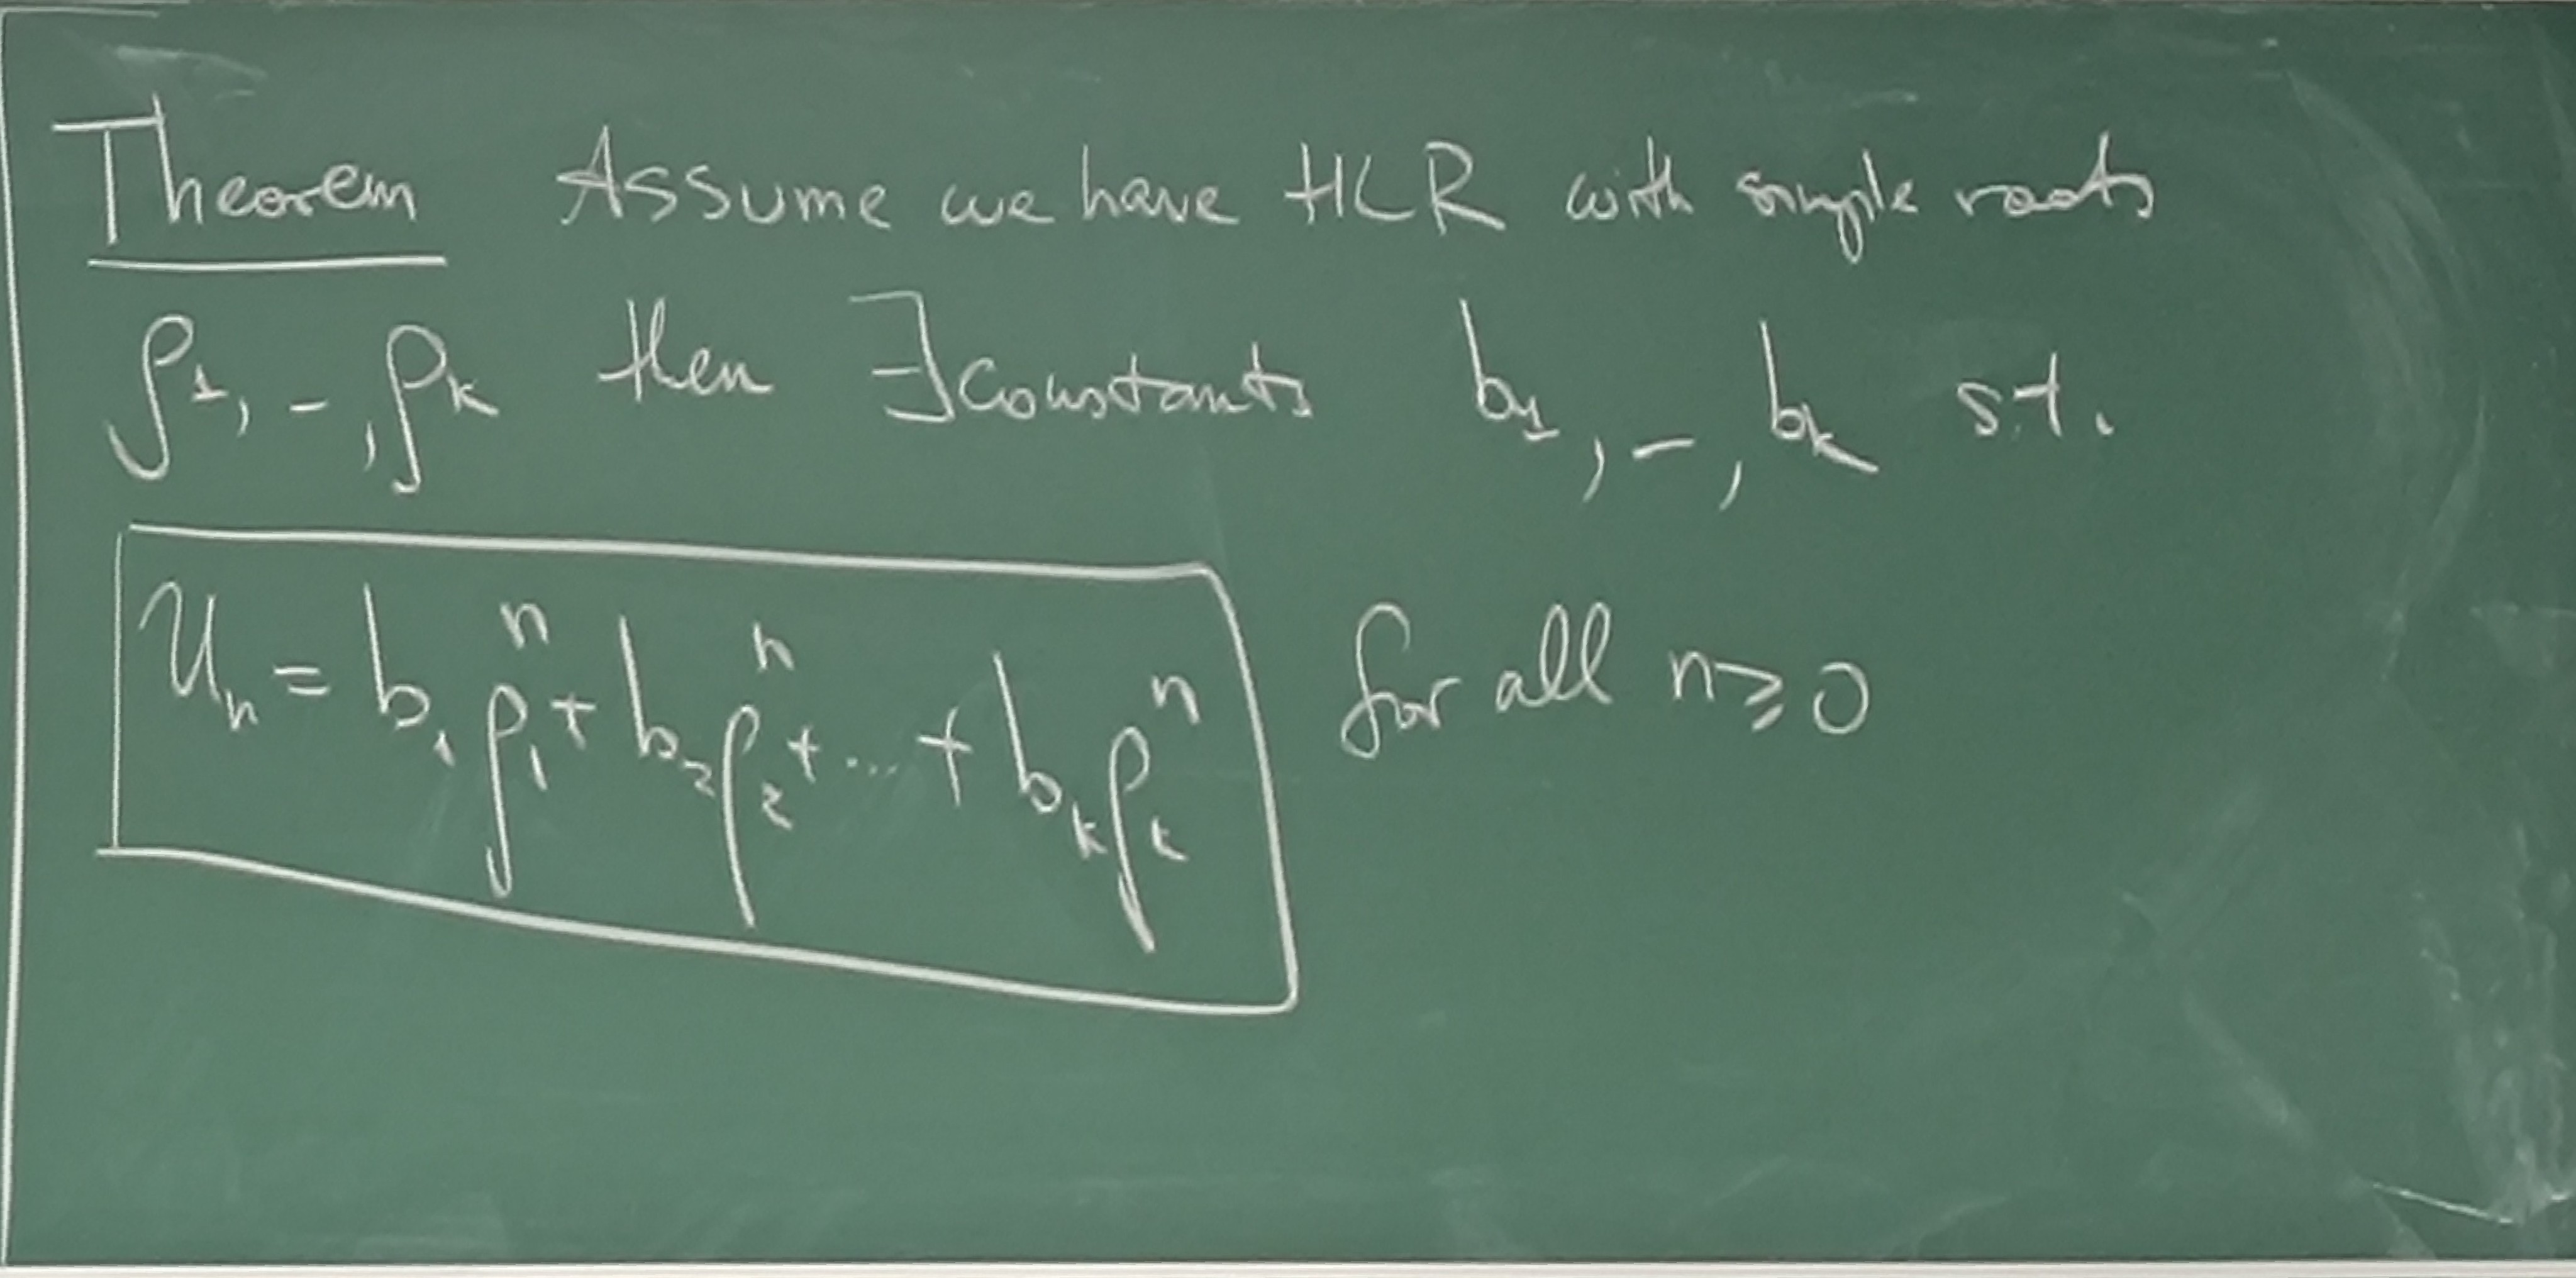 Theorem Assume we have HLR with simple roots
ρ₁, -, ρₖ then ∃ constants b₁, -, bₖ s.t.
uₙ = b₁ρ₁ⁿ + b₂ρ₂ⁿ + ... + bₖρₖⁿ for all n ≥ 0